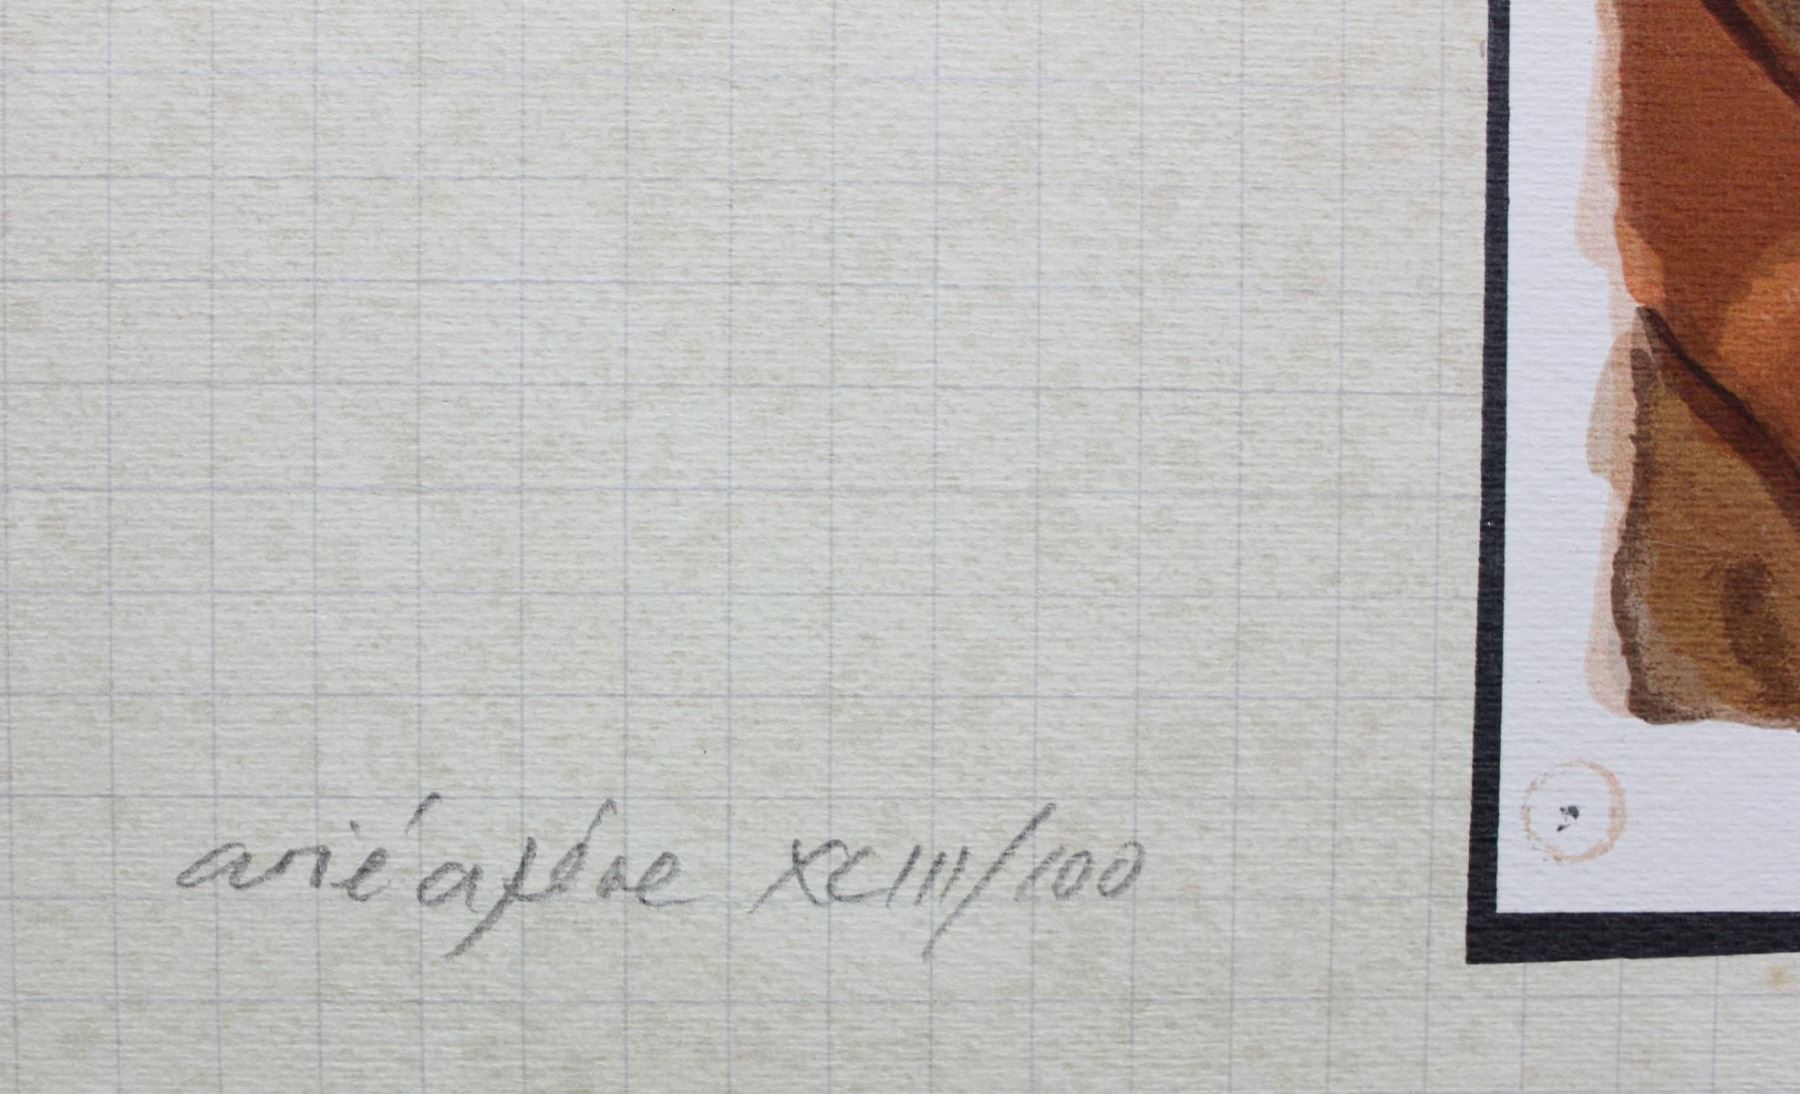 arié azéne XCIII/100